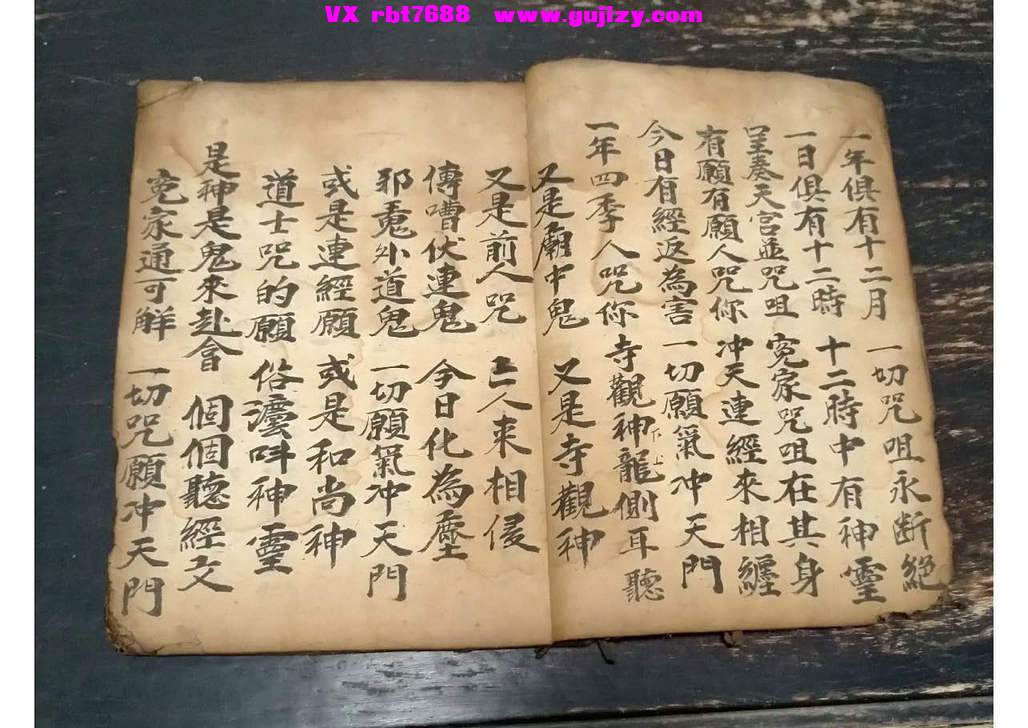 VX rbt7688 www.gujizy.com
一年俱有十二月 一切咒咀永断絕
一日俱有十二時 十二時中有神靈
呈奏天宫並咒咀 寃家咒咀在其身
有願有願人咒你 冲天連經來相纏
今日有經返為害 一切願氣冲天門
一年四季人咒你 寺觀神龍側耳聽
下上
又是廟中鬼 又是寺觀神
又是前人咒 亡人来相侵
傳嘈伏連鬼 今日化為塵
邪鬼外道鬼 一切願氣冲天門
或是連經願 或是和尚神
道士咒的願 俗灋呌神靈
是神是鬼來赴會 個個聽經文
寃家通可觧 一切咒願冲天門